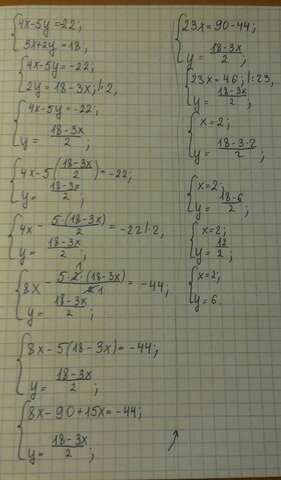 4x-5y=-22;
3x+2y=18;
4x-5y=-22;
2y=18-3x;|:2,
4x-5y=-22;
y=(18-3x)/2;
4x-5((18-3x)/2)=-22,
y=(18-3x)/2;
4x-5(18-3x)/2=-22|·2,
y=(18-3x)/2;
8x-5·2¹·(18-3x)/2₁=-44;
y=(18-3x)/2;
8x-5(18-3x)=-44;
y=(18-3x)/2;
8x-90+15x=-44;
y=(18-3x)/2;
23x=90-44;
y=(18-3x)/2;
23x=46;|:23,
y=(18-3x)/2;
x=2;
y=(18-3·2)/2;
x=2;
y=(18-6)/2;
x=2;
y=12/2;
x=2;
y=6.